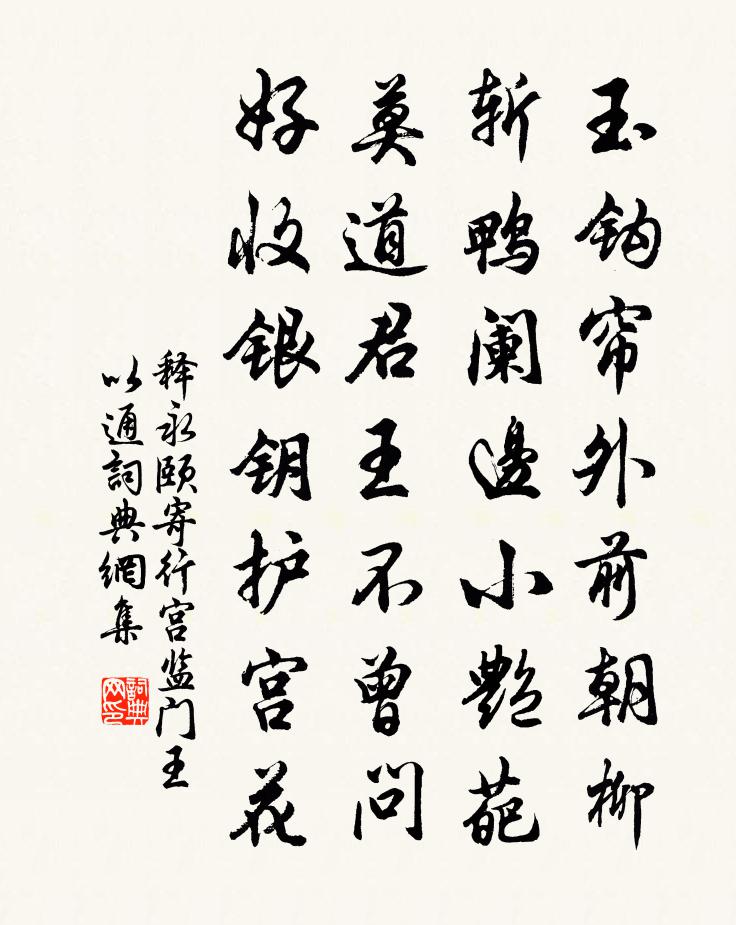 玉钩帘外前朝柳
斩鸭阑邊小艷葩
莫道君王不曾问
好收银钥护宫花
释永颐寄行宫监门王
以通詞典網集
詞典
网印